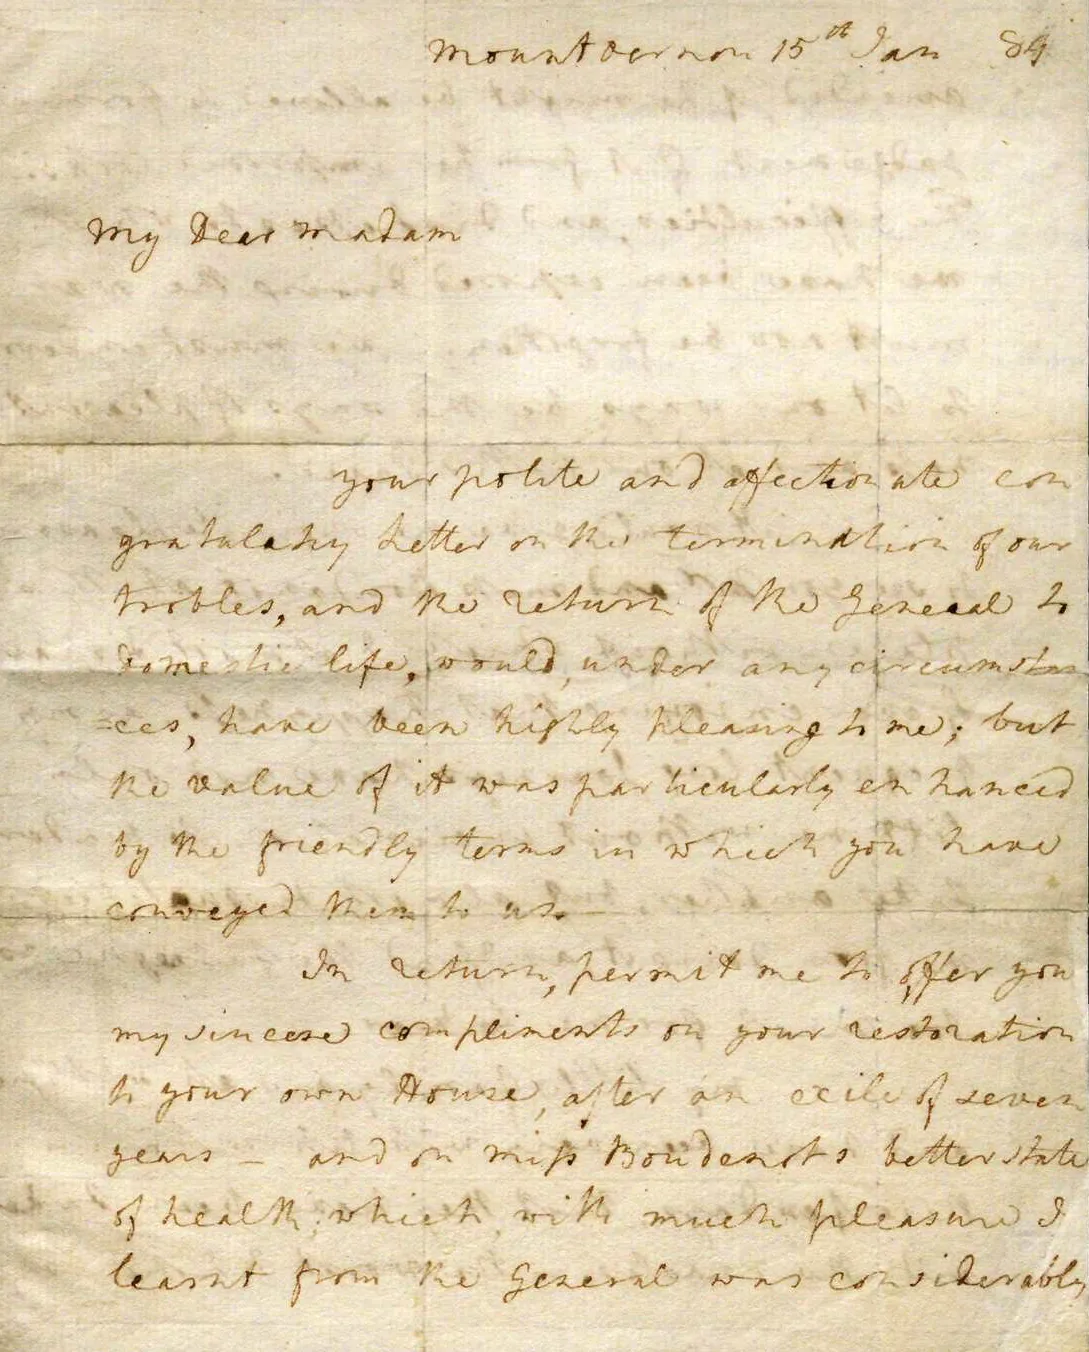 Mount Vernon 15th Jan 84
My Dear Madam
your polite and affectionate con
gratulatry Letter on the termination of our
trobles, and the return of the General to
domestic life, would, under any circumstan
=ces, have been highly pleasing to me; but
the value of it was particularly enhanced
by the friendly terms in which you have
conveyed them to us.—
In return, permit me to offer you
my sincere compliments on your restoration
to your own House, after an exile of seven
years — and on miss Boudenots better state
of health; which with much pleasure I
learnt from the General was considerably